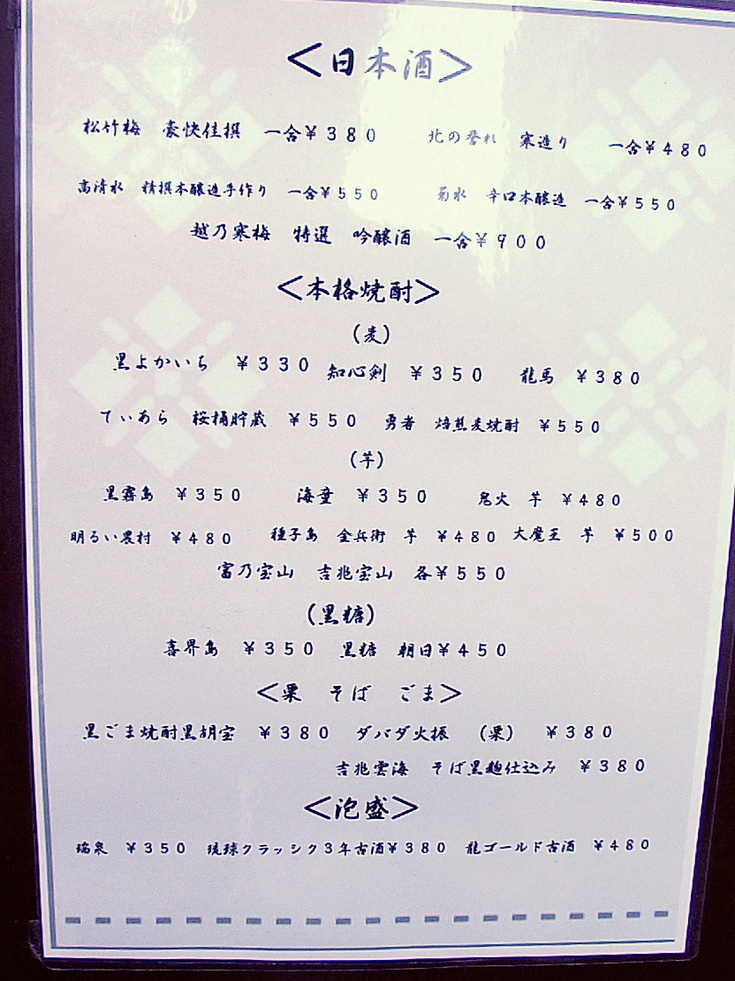 <日本酒>
松竹梅　豪快佳撰　一合¥380　北の誉れ　寒造り　一合¥480
高清水　精撰本醸造手作り　一合¥550　菊水　辛口本醸造　一合¥550
越乃寒梅　特選　吟醸酒　一合¥900
<本格焼酎>
(麦)
黒よかいち　¥330　知心剣　¥350　龍馬　¥380
てぃあら　桜桶貯蔵　¥550　勇者　焙煎麦焼酎　¥550
(芋)
黒霧島　¥350　海童　¥350　鬼火　芋　¥480
明るい農村　¥480　種子島　金兵衛　芋　¥480　大魔王　芋　¥500
富乃宝山　吉兆宝山　各¥550
(黒糖)
喜界島　¥350　黒糖　朝日¥450
<栗　そば　ごま>
黒ごま焼酎黒胡宝　¥380　ダバダ火振　(栗)　¥380
吉兆雲海　そば黒麹仕込み　¥380
<泡盛>
瑞泉　¥350　琉球クラッシク3年古酒¥380　龍ゴールド古酒　¥480